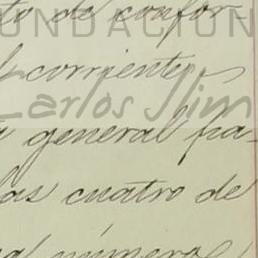 to de confor-
FUNDACIÓN
corriente,
Carlos Slim
general pa-
las cuatro de
número